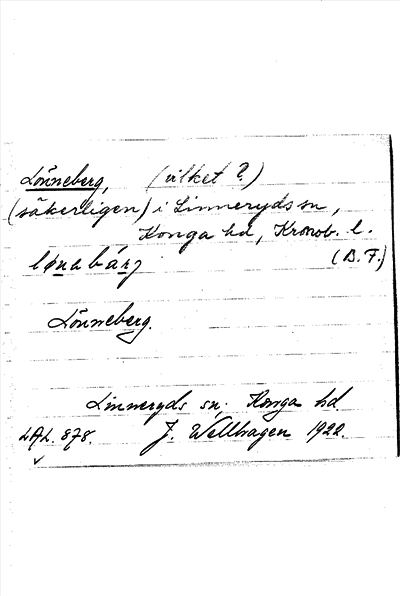 Lönneberg, (vilket?)
(säkerligen) i Linneryds sn,
Konga hd, Kronob. l.
lønabárj (B. F.)
Lönneberg.
Linneryds sn; Konga hd.
LAL. 878. J. Wellhagen 1922.